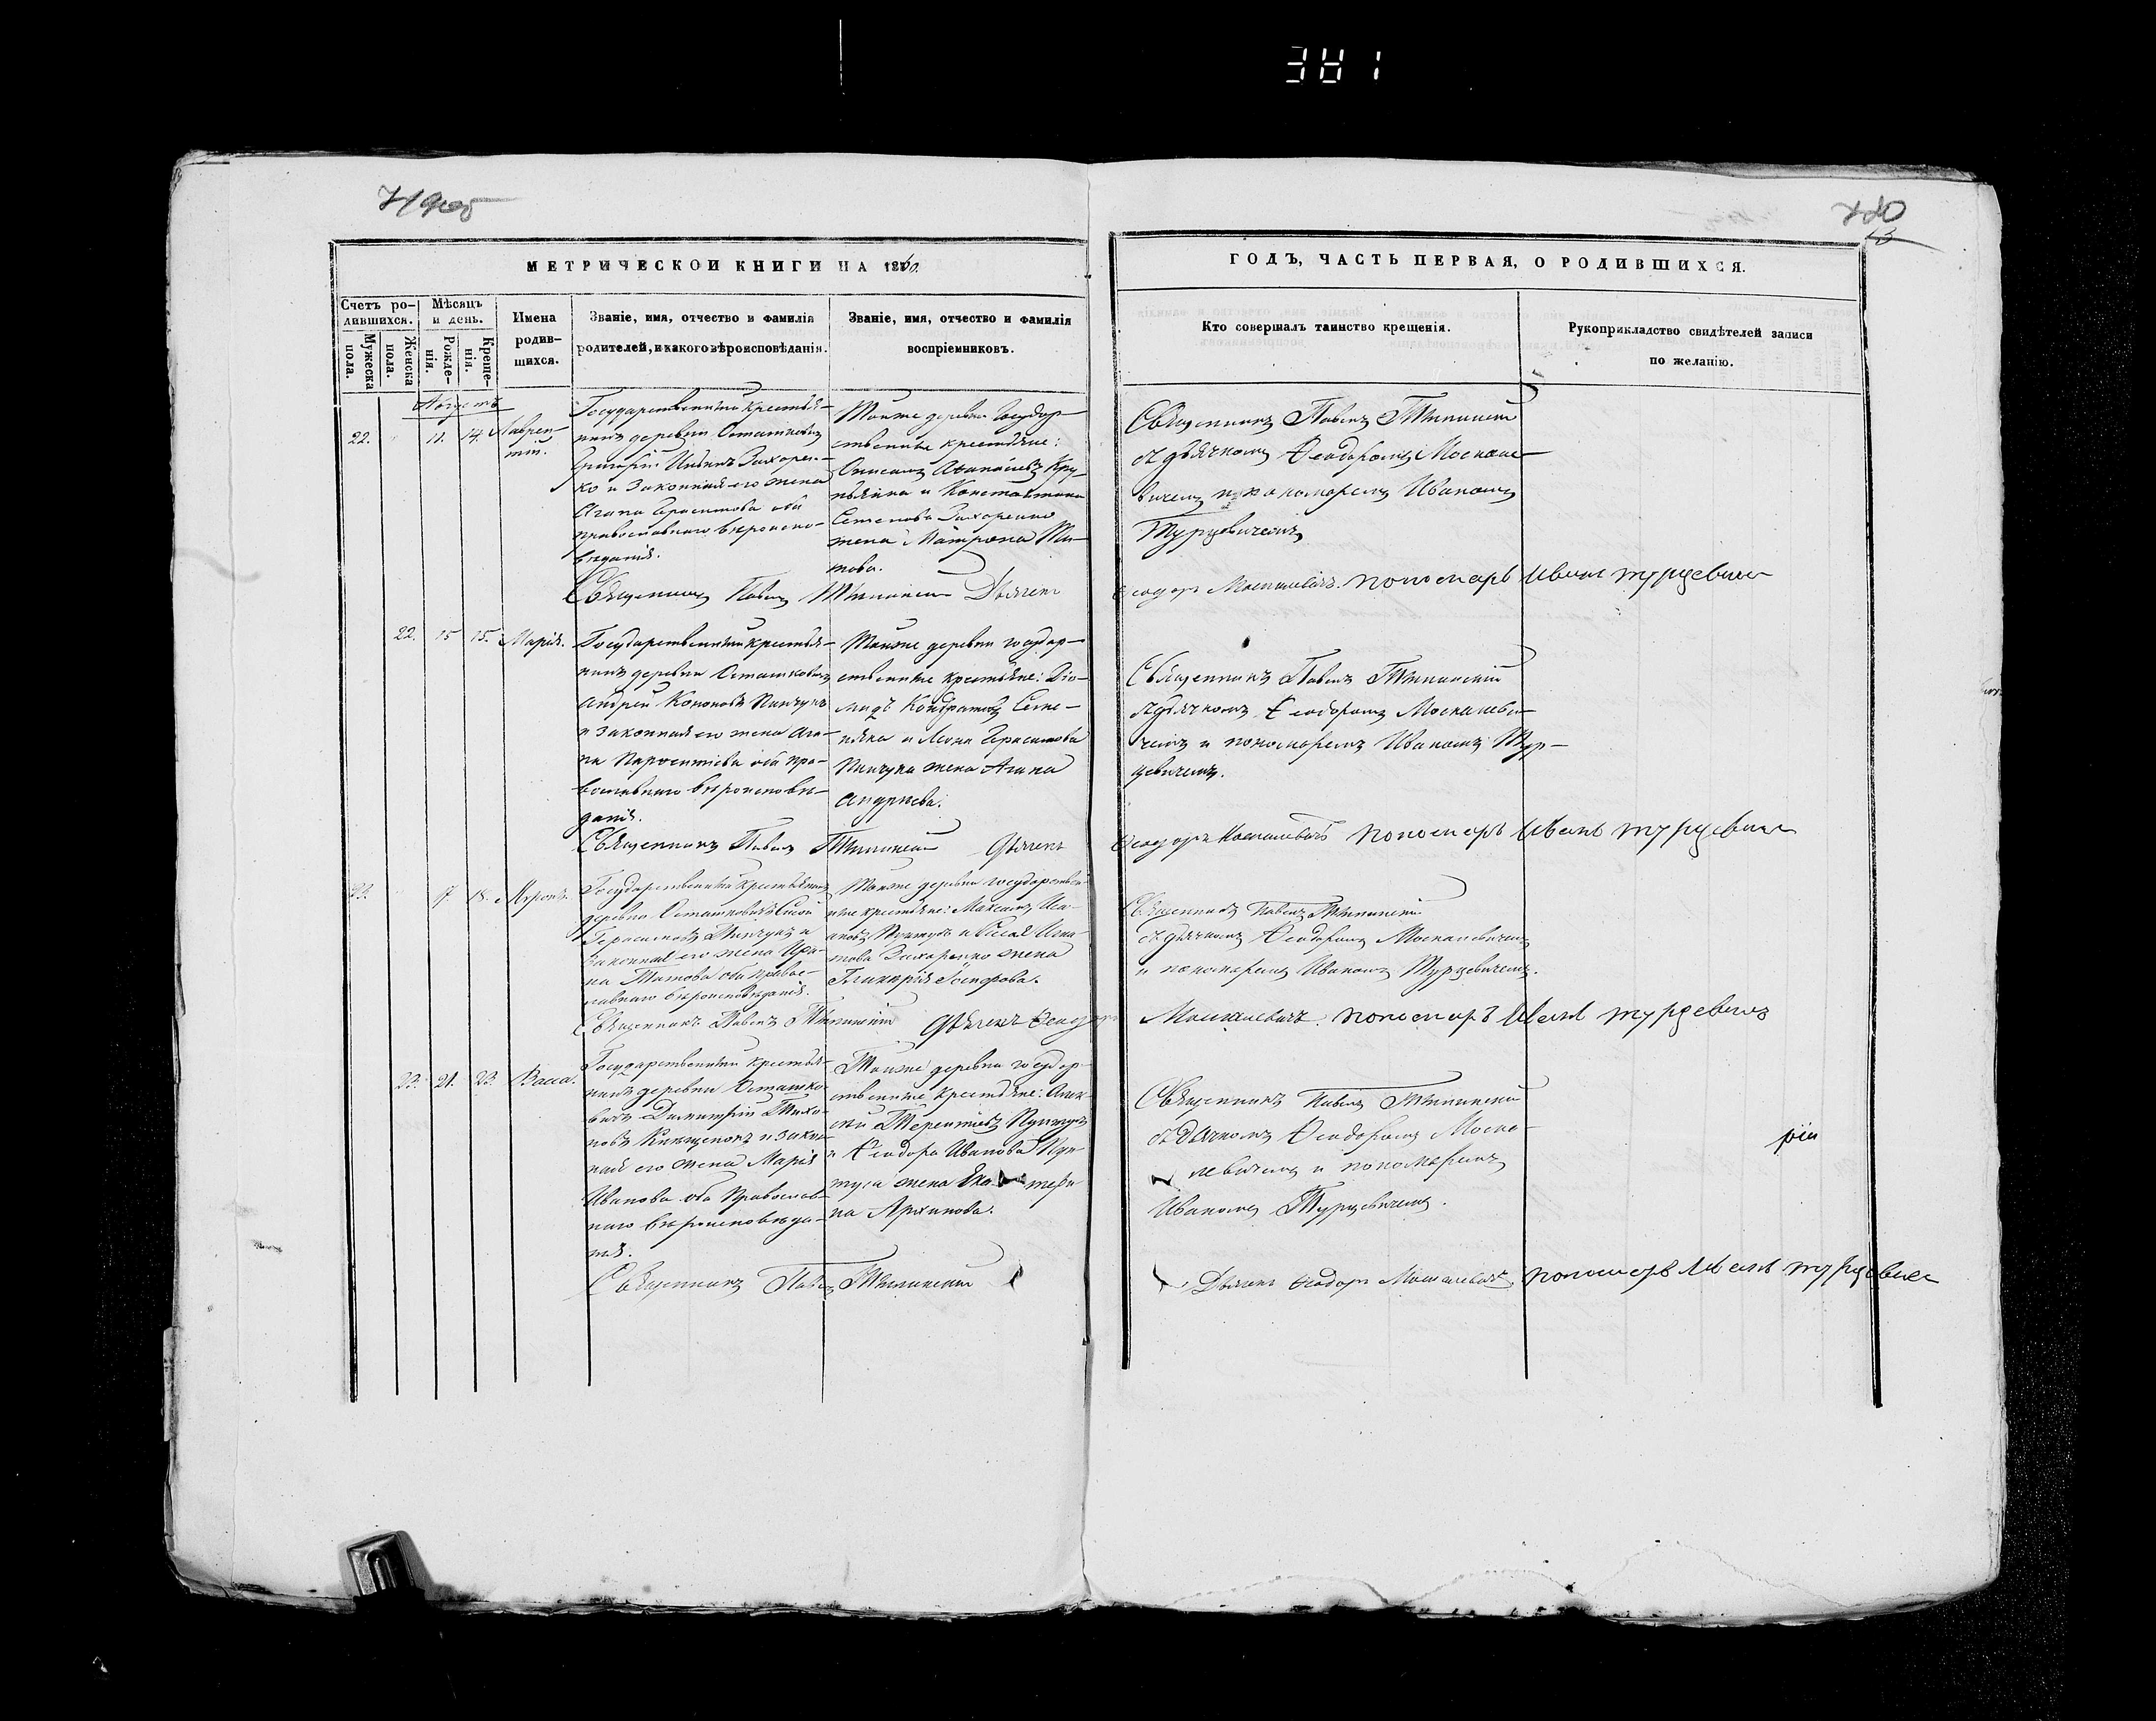 381
780
13
МЕТРИЧЕСКОЙ КНИГИ НА 1860.
ГОДЪ, ЧАСТЬ ПЕРВАЯ, О РОДИВШИХСЯ.
Счетъ родившихся.
Мужеска пола.
Женска пола.
Мѣсяцъ и день.
Рожденія.
Крещенія.
Имена родившихся.
Званіе, имя, отчество и фамилія
родителей, и какого вѣроисповѣданія.
Званіе, имя, отчество и фамилія
воспріемниковъ.
Кто совершалъ таинство крещенія.
Рукоприкладство свидѣтелей записи
по желанію.
Августъ
22. 11. 14. Лаврен-
тій.
Государственный крестья-
нинъ деревни Осташковичъ
Григорій Ивановъ Захорен-
ко и законная его жена
Агапа Герасимова оба
православнаго вѣроиспо-
вѣданія.
Тойже деревни государ-
ственные крестьяне:
Онисимъ Аѳанасіевъ
и Константина
Семенова Захоренко
жена Матрона Ти-
това.
Священникъ Павелъ
съ дьячкомъ Ѳеодоромъ Москале-
вичемъ и пономаремъ Иваномъ
Турцевичемъ
Священникъ Павелъ Дьячекъ Ѳеодоръ Москалевичъ. пономарь Иванъ Турцевичъ
22. 15 15. Марія.
Государственный крестья-
нинъ деревни Осташковичъ
Андрей Кононовъ Пинчукъ
и законная его жена Ага-
па Парѳентіева оба пра-
вославнаго вѣроисповѣ-
данія.
Тойже деревни государ-
ственные крестьяне: Діо-
мидъ Кондратовъ Семе-
няка и Леона Герасимова
Пинчука жена Агапа
Андреева.
Священникъ Павелъ
съ дьячкомъ Ѳеодоромъ Москалеви-
чемъ и пономаремъ Иваномъ Тур-
цевичемъ.
Священникъ Павелъ Дьячекъ Ѳеодоръ Москалевичъ пономарь Иванъ Турцевичъ
23. 17. 18. Миронъ.
Государственный крестьянинъ
деревни Осташковичъ
Герасимовъ Пинчукъ и
законная его жена Ири-
на Титова оба правос-
лавнаго вѣроисповѣданія.
Тойже деревни государствен-
ные крестьяне: Максимъ
Захоренко жена
Гликерія
Священникъ Павелъ
съ дьячкомъ Ѳеодоромъ Москалевичемъ
и пономаремъ Иваномъ Турцевичемъ.
Священникъ Павелъ Дьячекъ Ѳеодоръ Москалевичъ. пономарь Иванъ Турцевичъ
23. 21. 23. Васса.
Государственный крестья-
нинъ деревни Осташко-
вичъ Димитрій Тихо-
новъ и закон-
ная его жена Марія
Иванова оба православ-
наго вѣроисповѣда-
нія.
Тойже деревни государ-
ственные крестьяне: Алек-
сѣй Терентіевъ
и Ѳеодора Иванова
жена Екатери-
на Архипова.
Священникъ Павелъ
съ дьячкомъ Ѳеодоромъ Моска-
левичемъ и пономаремъ
Иваномъ Турцевичемъ.
рія
Священникъ Павелъ
Дьячекъ Ѳеодоръ Москалевичъ, пономарь Иванъ Турцевичъ